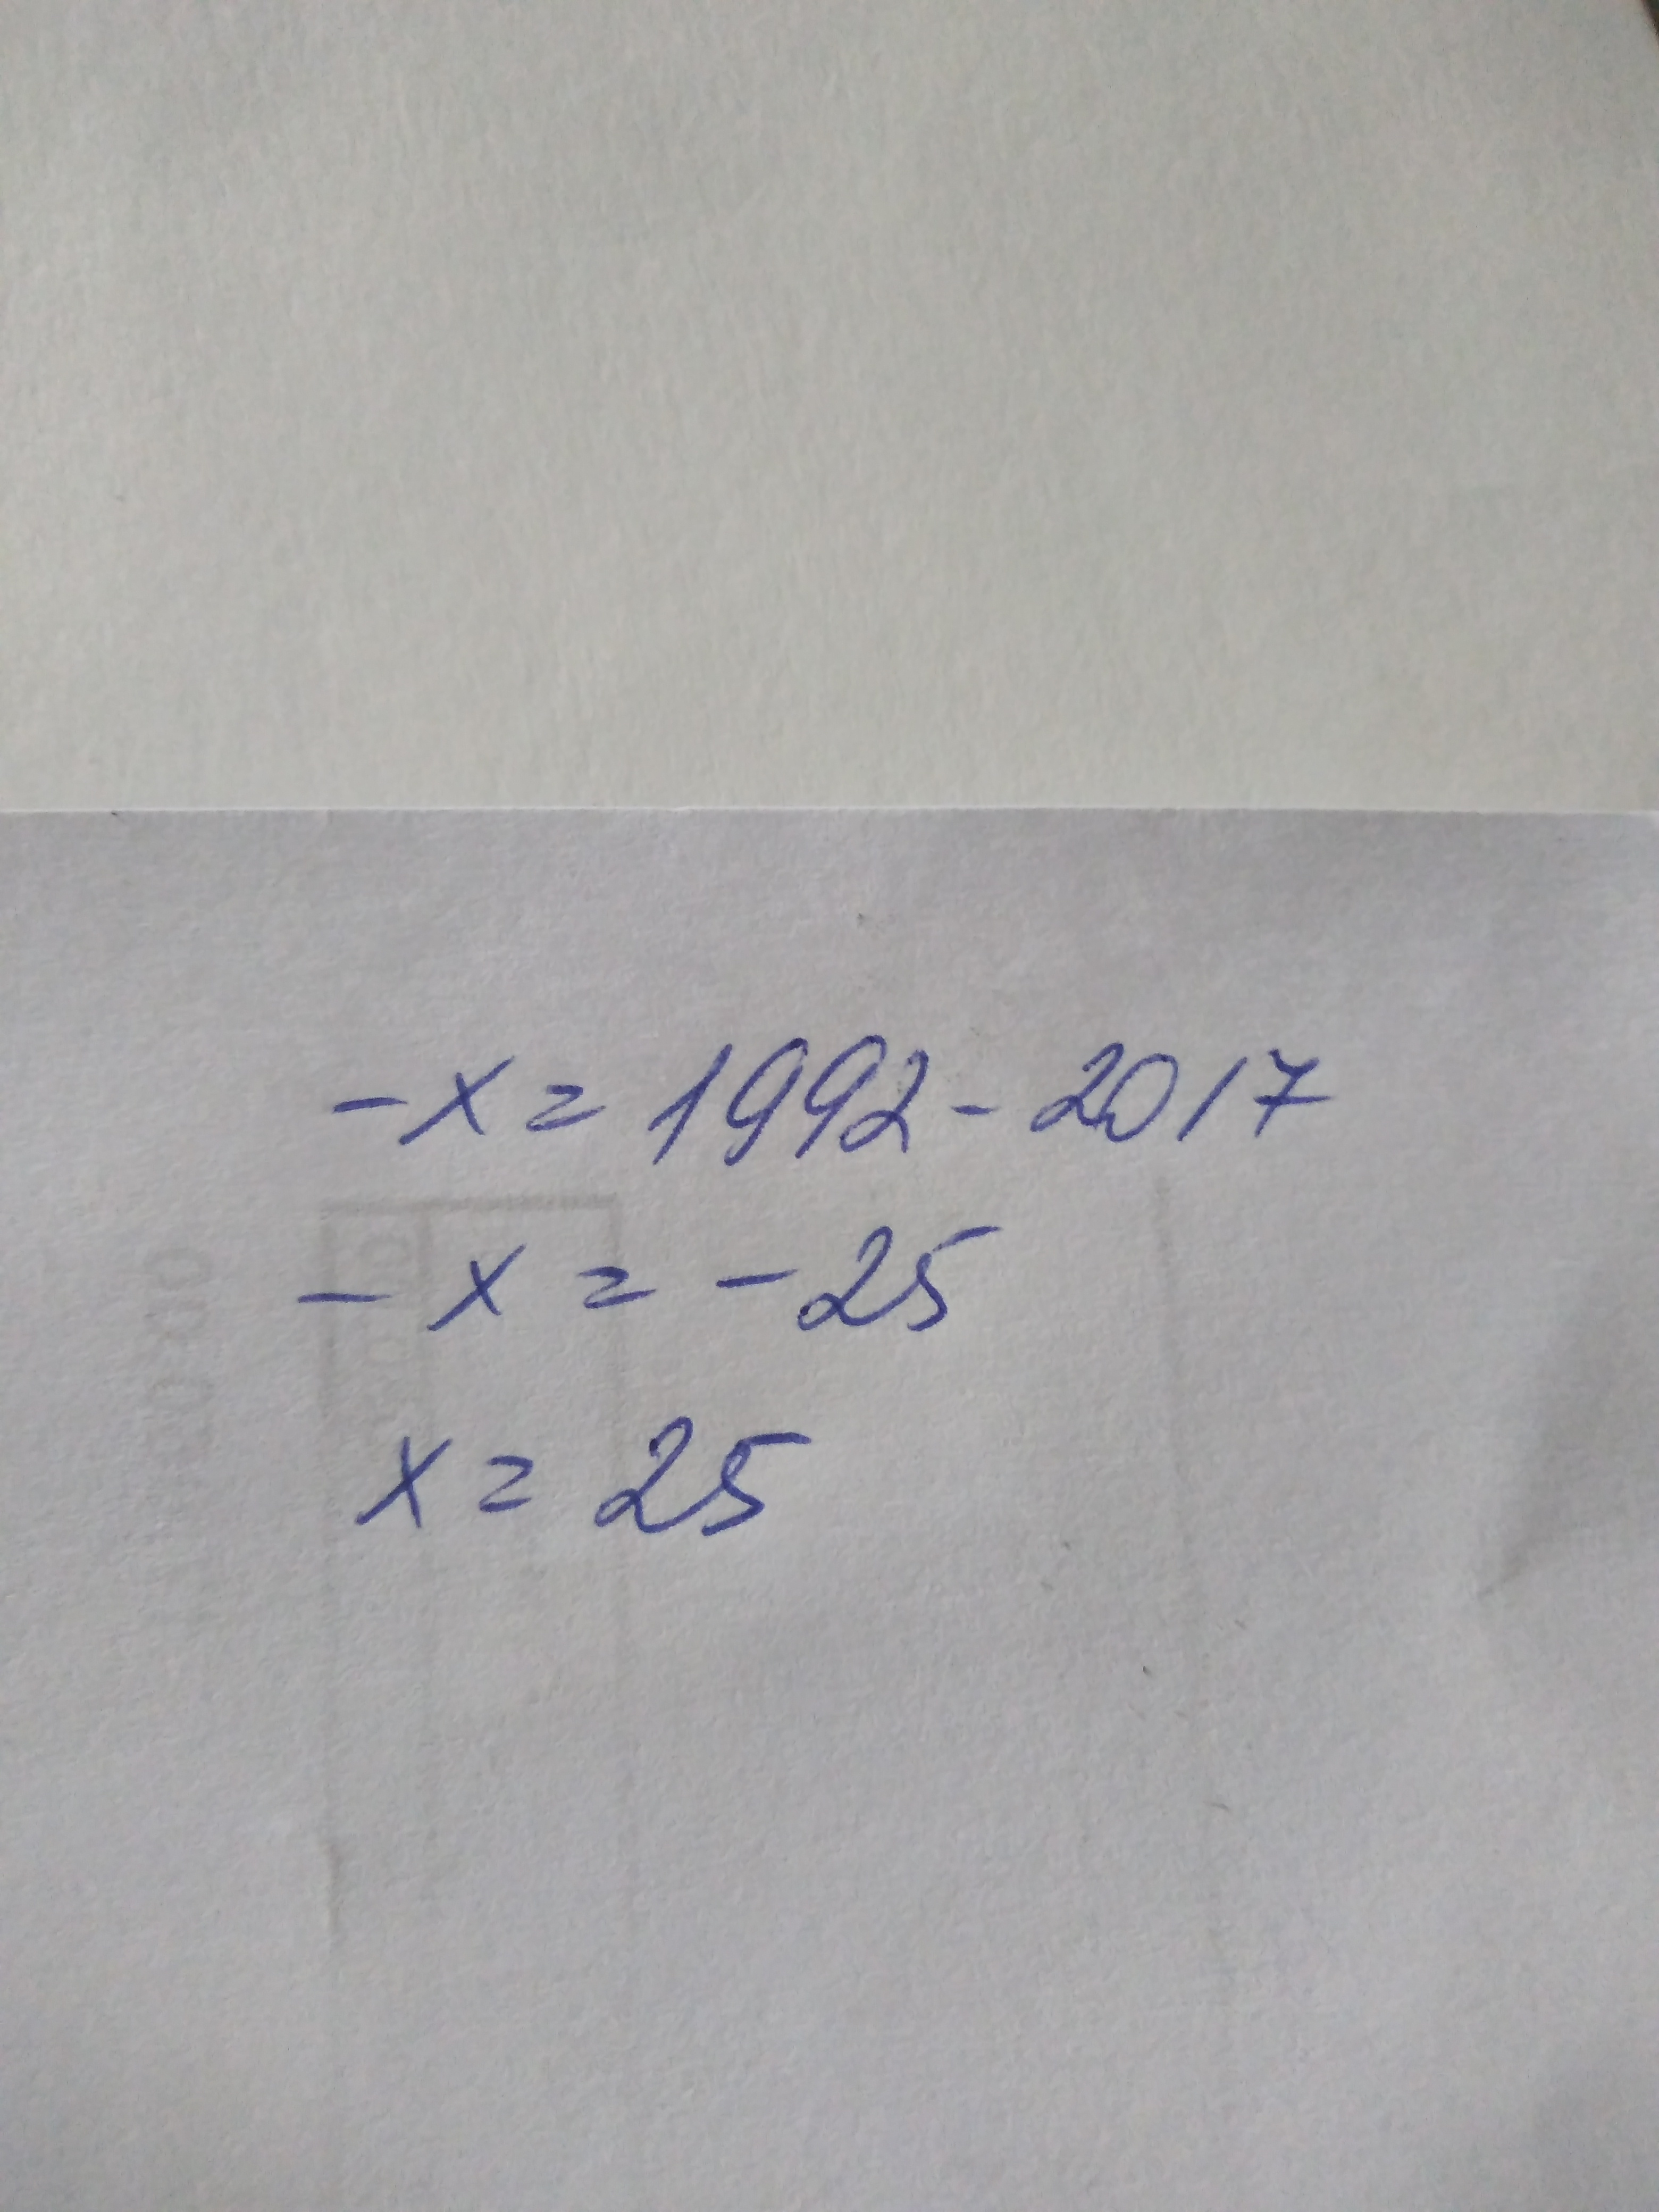 -x = 1992 - 2017
- x = - 25
x = 25